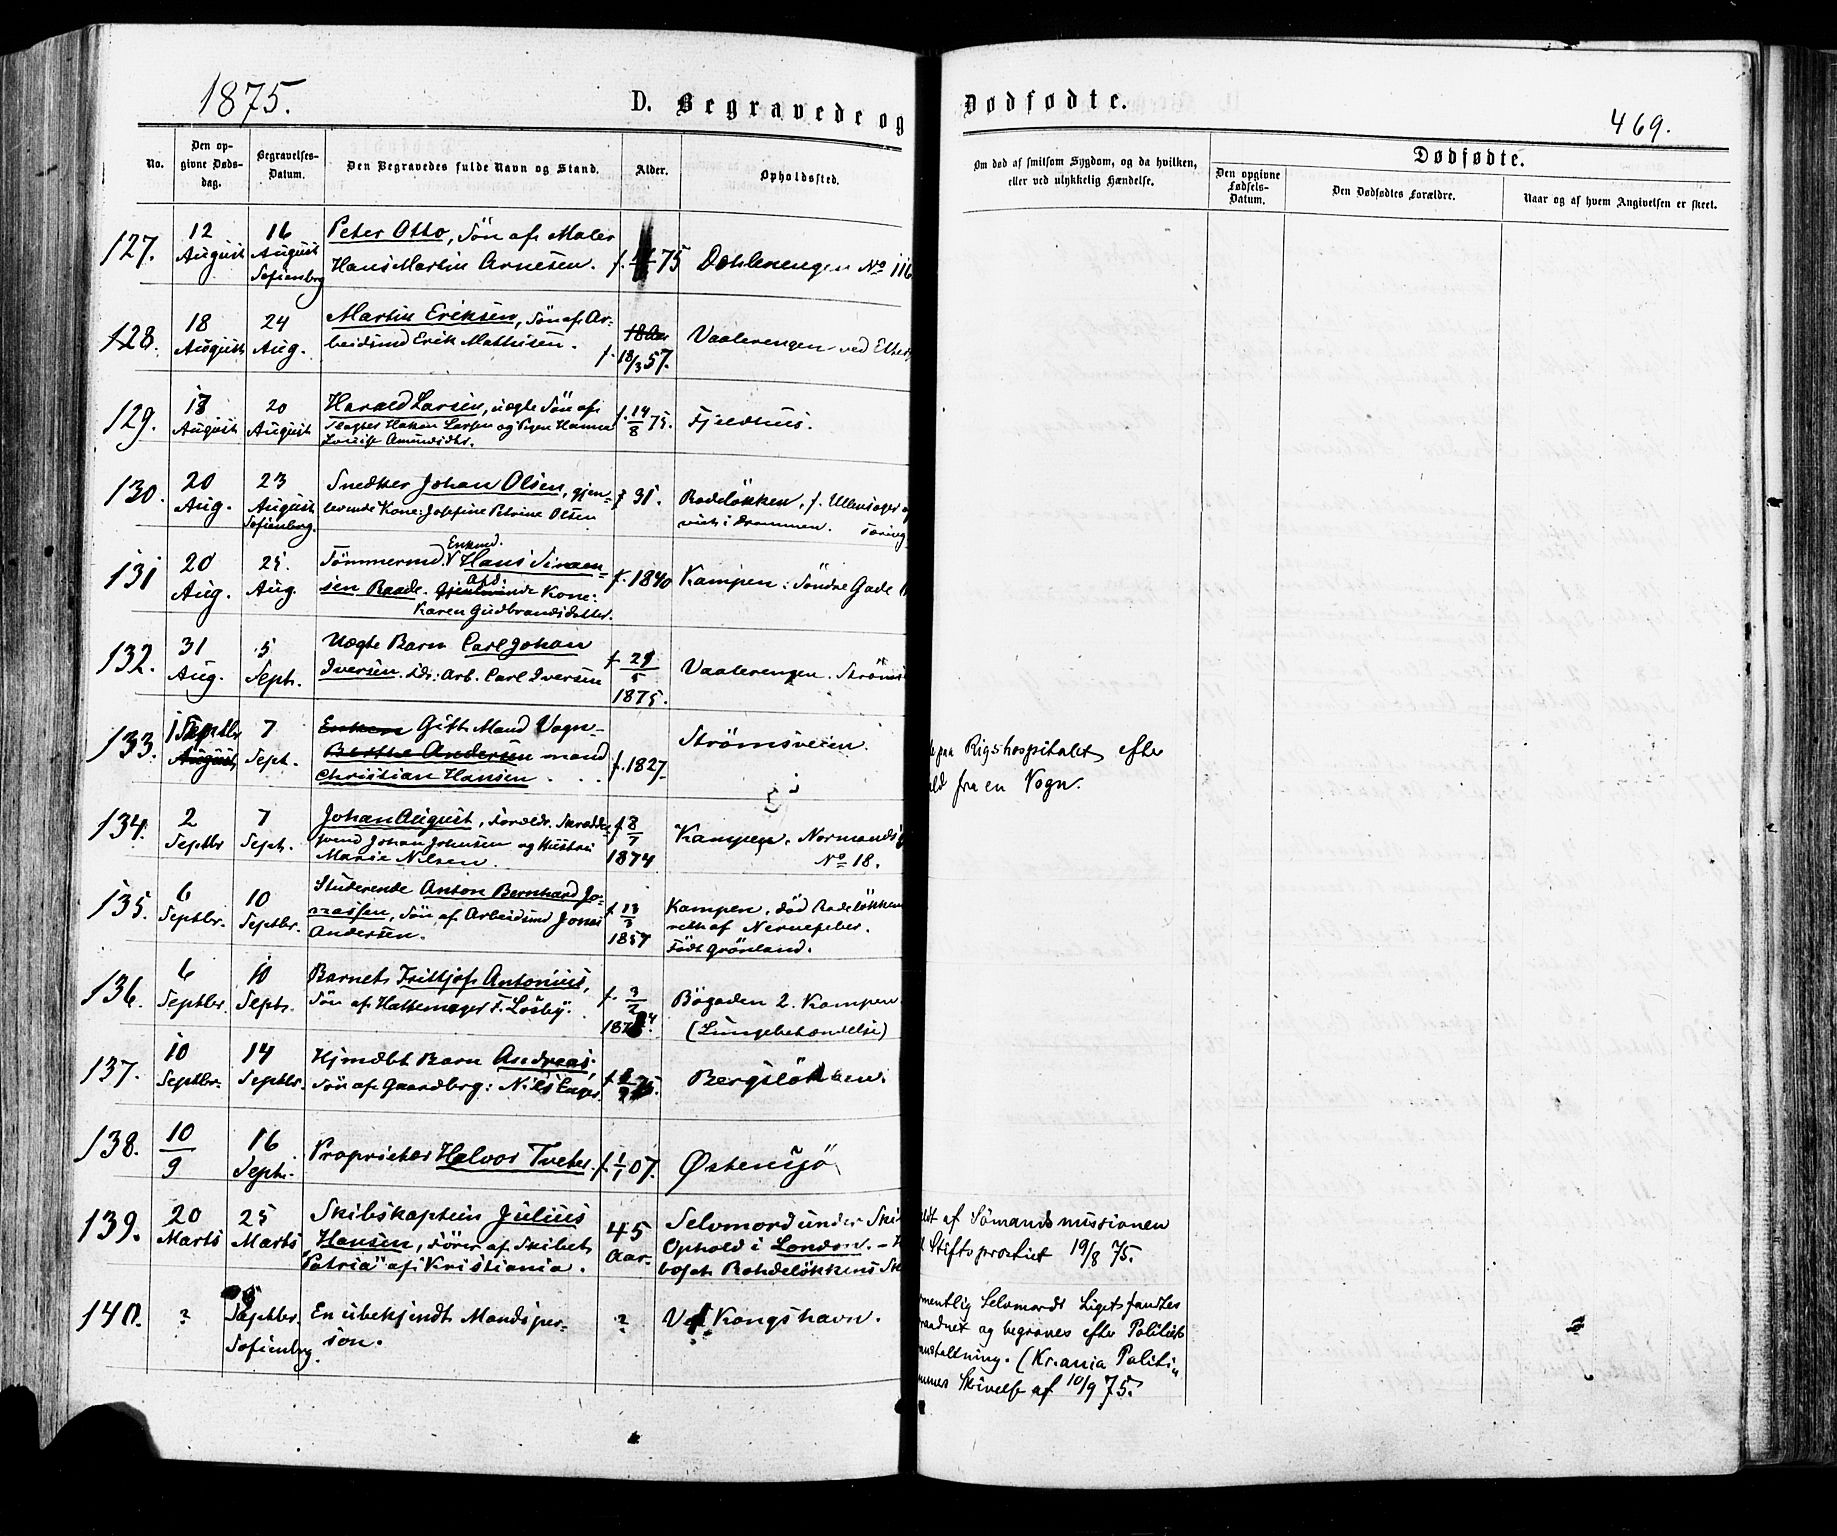 1875.
D. Begravede og Dødfødte.
469.
No.
Den op-
givne Døds-
dag.
Begravelses-
Datum.
Den Begravedes fulde Navn og Stand.
Alder.
Opholdssted.
Om død af smitsom Sygdom, og da hvilken,
eller ved ulykkelig Hændelse.
Dødfødte.
Den opgivne
Fødsels-
Datum.
Den Dødfødtes Forældre.
Naar og af hvem Angivelsen er skeet.
127.
12
August
16
August
Sofienberg
Peter Otto, Søn af Maler
Hans Martin Arnesen.
75
Dahlenengen No 116
128.
18
August
24
Aug.
Martin Eriksen, Søn af Ar-
beidsmd Erik Mathisen.
18 Aar
f. 18/3 57.
Vaalerengen ved
129.
18
August
20
August
Harald Larsen, uægte Søn af
Slagter Hakon Larsen og Pigen Hanna
Lovise Amundsdtr.
f. 14/8 75.
Fjeldhus.
130.
20
Aug.
23
August
Sofienberg.
Snedker Johan Olsen, gjen-
levende Kone: Josefine Petrine Olsen
f 31.
Rodeløkken, f. Ullensager
viet i Drammen.
131
20
Aug.
25.
Aug.
Tømmermd. Enkmd. Hans Simen-
sen Raade. Gjenlevende afd. Kone:
Karen Gudbrandsdatter.
f. 1840
Kampen: Søndre Gade
132.
31
Aug.
5
Sept.
Uægte Barn Carl Johan
Iversen. Fdr: Arb. Carl Iversen
f 29/5
1875.
Vaalerengen. Strøms
133.
1 Septbr
August
7
Sept.
Enken Gift Mand Vogn-
Berthe Andersen mand
Christian Hansen.
f. 1827.
Strømsveien.
paa Rigshospitalet efter
ald fra en Vogn.
134.
2
Septbr
7
Sept.
Johan August, Foreldr. Skrædder
svend Johan Johnsen og Hustru
Marie Nilsen.
f 8/7
1874
Kampen, Normands
No 18.
135.
6
Septbr.
10
Septbr.
Studerende Anton Bernhard Jo-
nassen, Søn af Arbeidsmd Jonas
Andersen.
f 13/3
1857
Kampen, død Rodeløkken
af Nervefeber.
Født Grønland.
136.
6
Septbr.
10
Septr.
Barnet Fritjof Antonius,
Søn af Hattemager F. Løsby.
f. 3/2
187 4.
Bøgaden 2. Kampen
(Lungebetændelse)
137.
10
Septbr.
14
Septbr.
Hjmdøbt Barn Andreas,
Søn af Gaardbrg: Nils
75.
Bergsløkken.
138.
10/9
16
Sept.
Proprietær Halvor Tveter.
f. 1/1 07.
Østensjø
139.
20
Marts
25
Marts
Skibskaptein Julius
Hansen, Fører af Skibet
"Patria" af Kristiania.
45
Aar
Selvmord under Ski
Ophold i London. -
bosat Rohdeløkkens
dt af Sømandsmissionen
Stiftsprostiet 19/8 75.
140.
?
Septbr.
Sofienberg.
En ubekjendt Mandsper-
son.
?
Ved Kongshavn.
mentlig Selvmord. Liget fandtes
og begraves efter Politiets
anstaltning. (Kr.ania Politi
Skrivelse af 10/9 75.